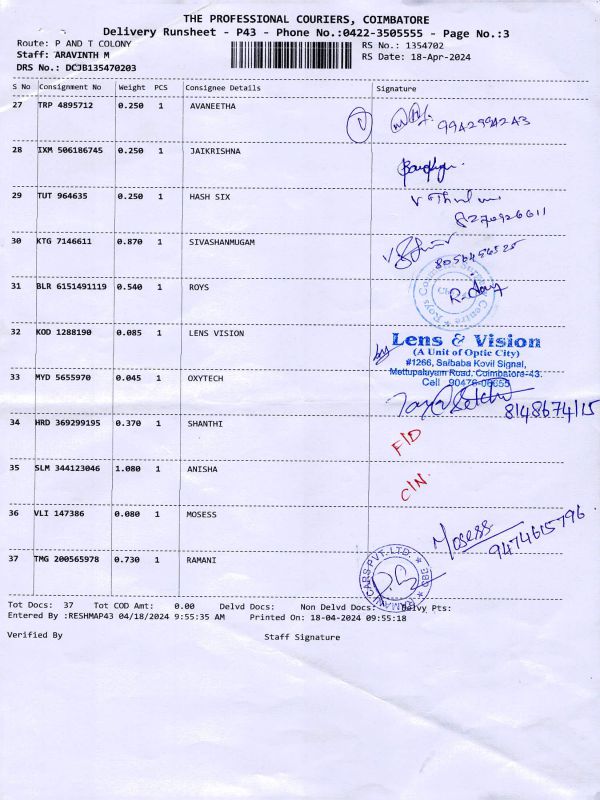 THE PROFESSIONAL COURIERS, COIMBATORE
Delivery Runsheet - P43 - Phone No.:0422-3505555 - Page No.:3
Route: P AND T COLONY RS No.: 1354702
Staff: ARAVINTH M RS Date: 18-Apr-2024
DRS No.: DCJB135470203
S No Consignment No Weight PCS Consignee Details Signature
27 TRP 4895712 0.250 1 AVANEETHA
9942994243
28 IXM 506186745 0.250 1 JAIKRISHNA
29 TUT 964635 0.250 1 HASH SIX
8270926611
30 KTG 7146611 0.870 1 SIVASHANMUGAM
8056456525
31 BLR 6151491119 0.540 1 ROYS
32 KOD 1288190 0.085 1 LENS VISION
by Lens & Vision
(A Unit of Optic City)
#1266, Saibaba Kovil Signal,
Mettupalayam Road, Coimbatore-43.
Cell 90476-06655
33 MYD 5655970 0.045 1 OXYTECH
8148674115
34 HRD 369299195 0.370 1 SHANTHI
F/D
35 SLM 344123046 1.080 1 ANISHA
C/N.
36 VLI 147386 0.080 1 MOSESS
Mosess
9474615796
37 TMG 200565978 0.730 1 RAMANI
RAMANI CARS PVT. LTD. ★ CBE ★
Tot Docs: 37 Tot COD Amt: 0.00 Delvd Docs: Non Delvd Docs: Delvy Pts:
Entered By :RESHMAP43 04/18/2024 9:55:35 AM Printed On: 18-04-2024 09:55:18
Verified By Staff Signature